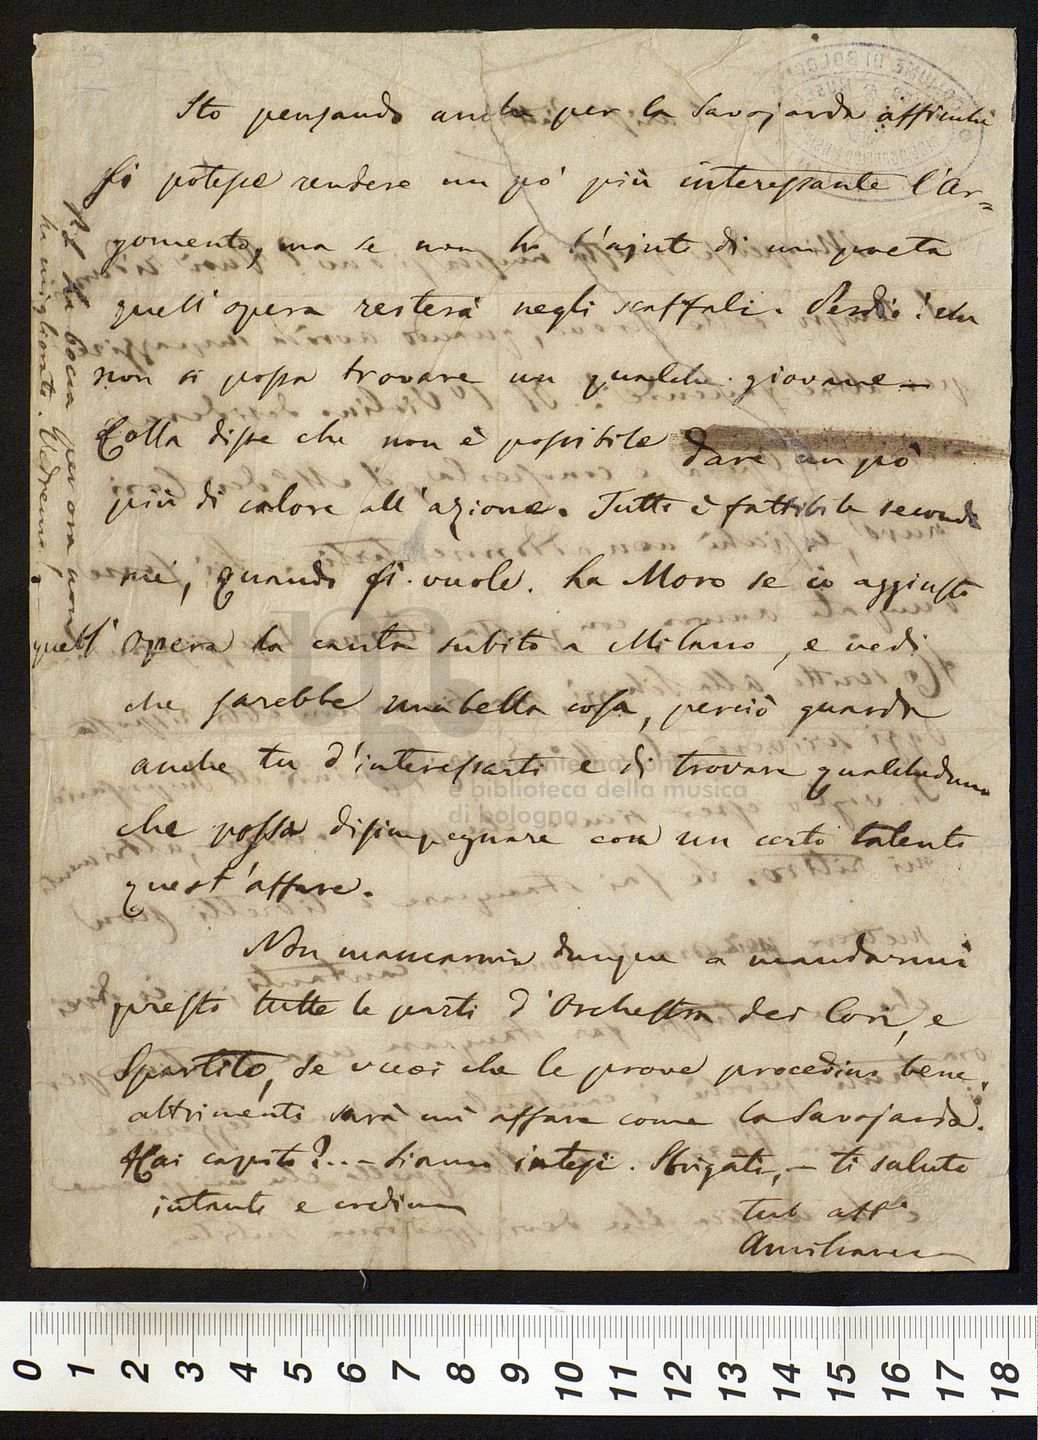 Sto pensando anche per la Savojarda affinchè
si potesse rendere un pò più interessante l'Ar=
gomento, ma se non ho l'ajuto di un poeta
quell'opera resterà negli scaffali. Perdio! che
non si possa trovare un qualche giovane —
Cotta disse che non è possibile dare un pò
più di calore all'azione. Tutto è fattibile secondo
me, quando si vuole. La Moro se io aggiusto
quell'opera la canta subito a Milano, e vedi
che sarebbe una bella cosa, perciò guarda
anche tu d'interessarti e di trovare qualcheduno
che possa disimpegnare con un certo talento
quest'affare.
Non mancarmi dunque a mandarmi
presto tutte le parti d'Orchestra dei Cori, e
Spartito, se vuoi che le prove procedino bene,
altrimenti sarà un affare come la Savojarda.
Hai capito?... – Siamo intesi. Sbrigati, – ti saluto
intanto e credimi
tuo aff.
Amilcare
la bocca per ora non
ha migliorato. Vedremo!
museo internazionale
e biblioteca della musica
di bologna
0 1 2 3 4 5 6 7 8 9 10 11 12 13 14 15 16 17 18